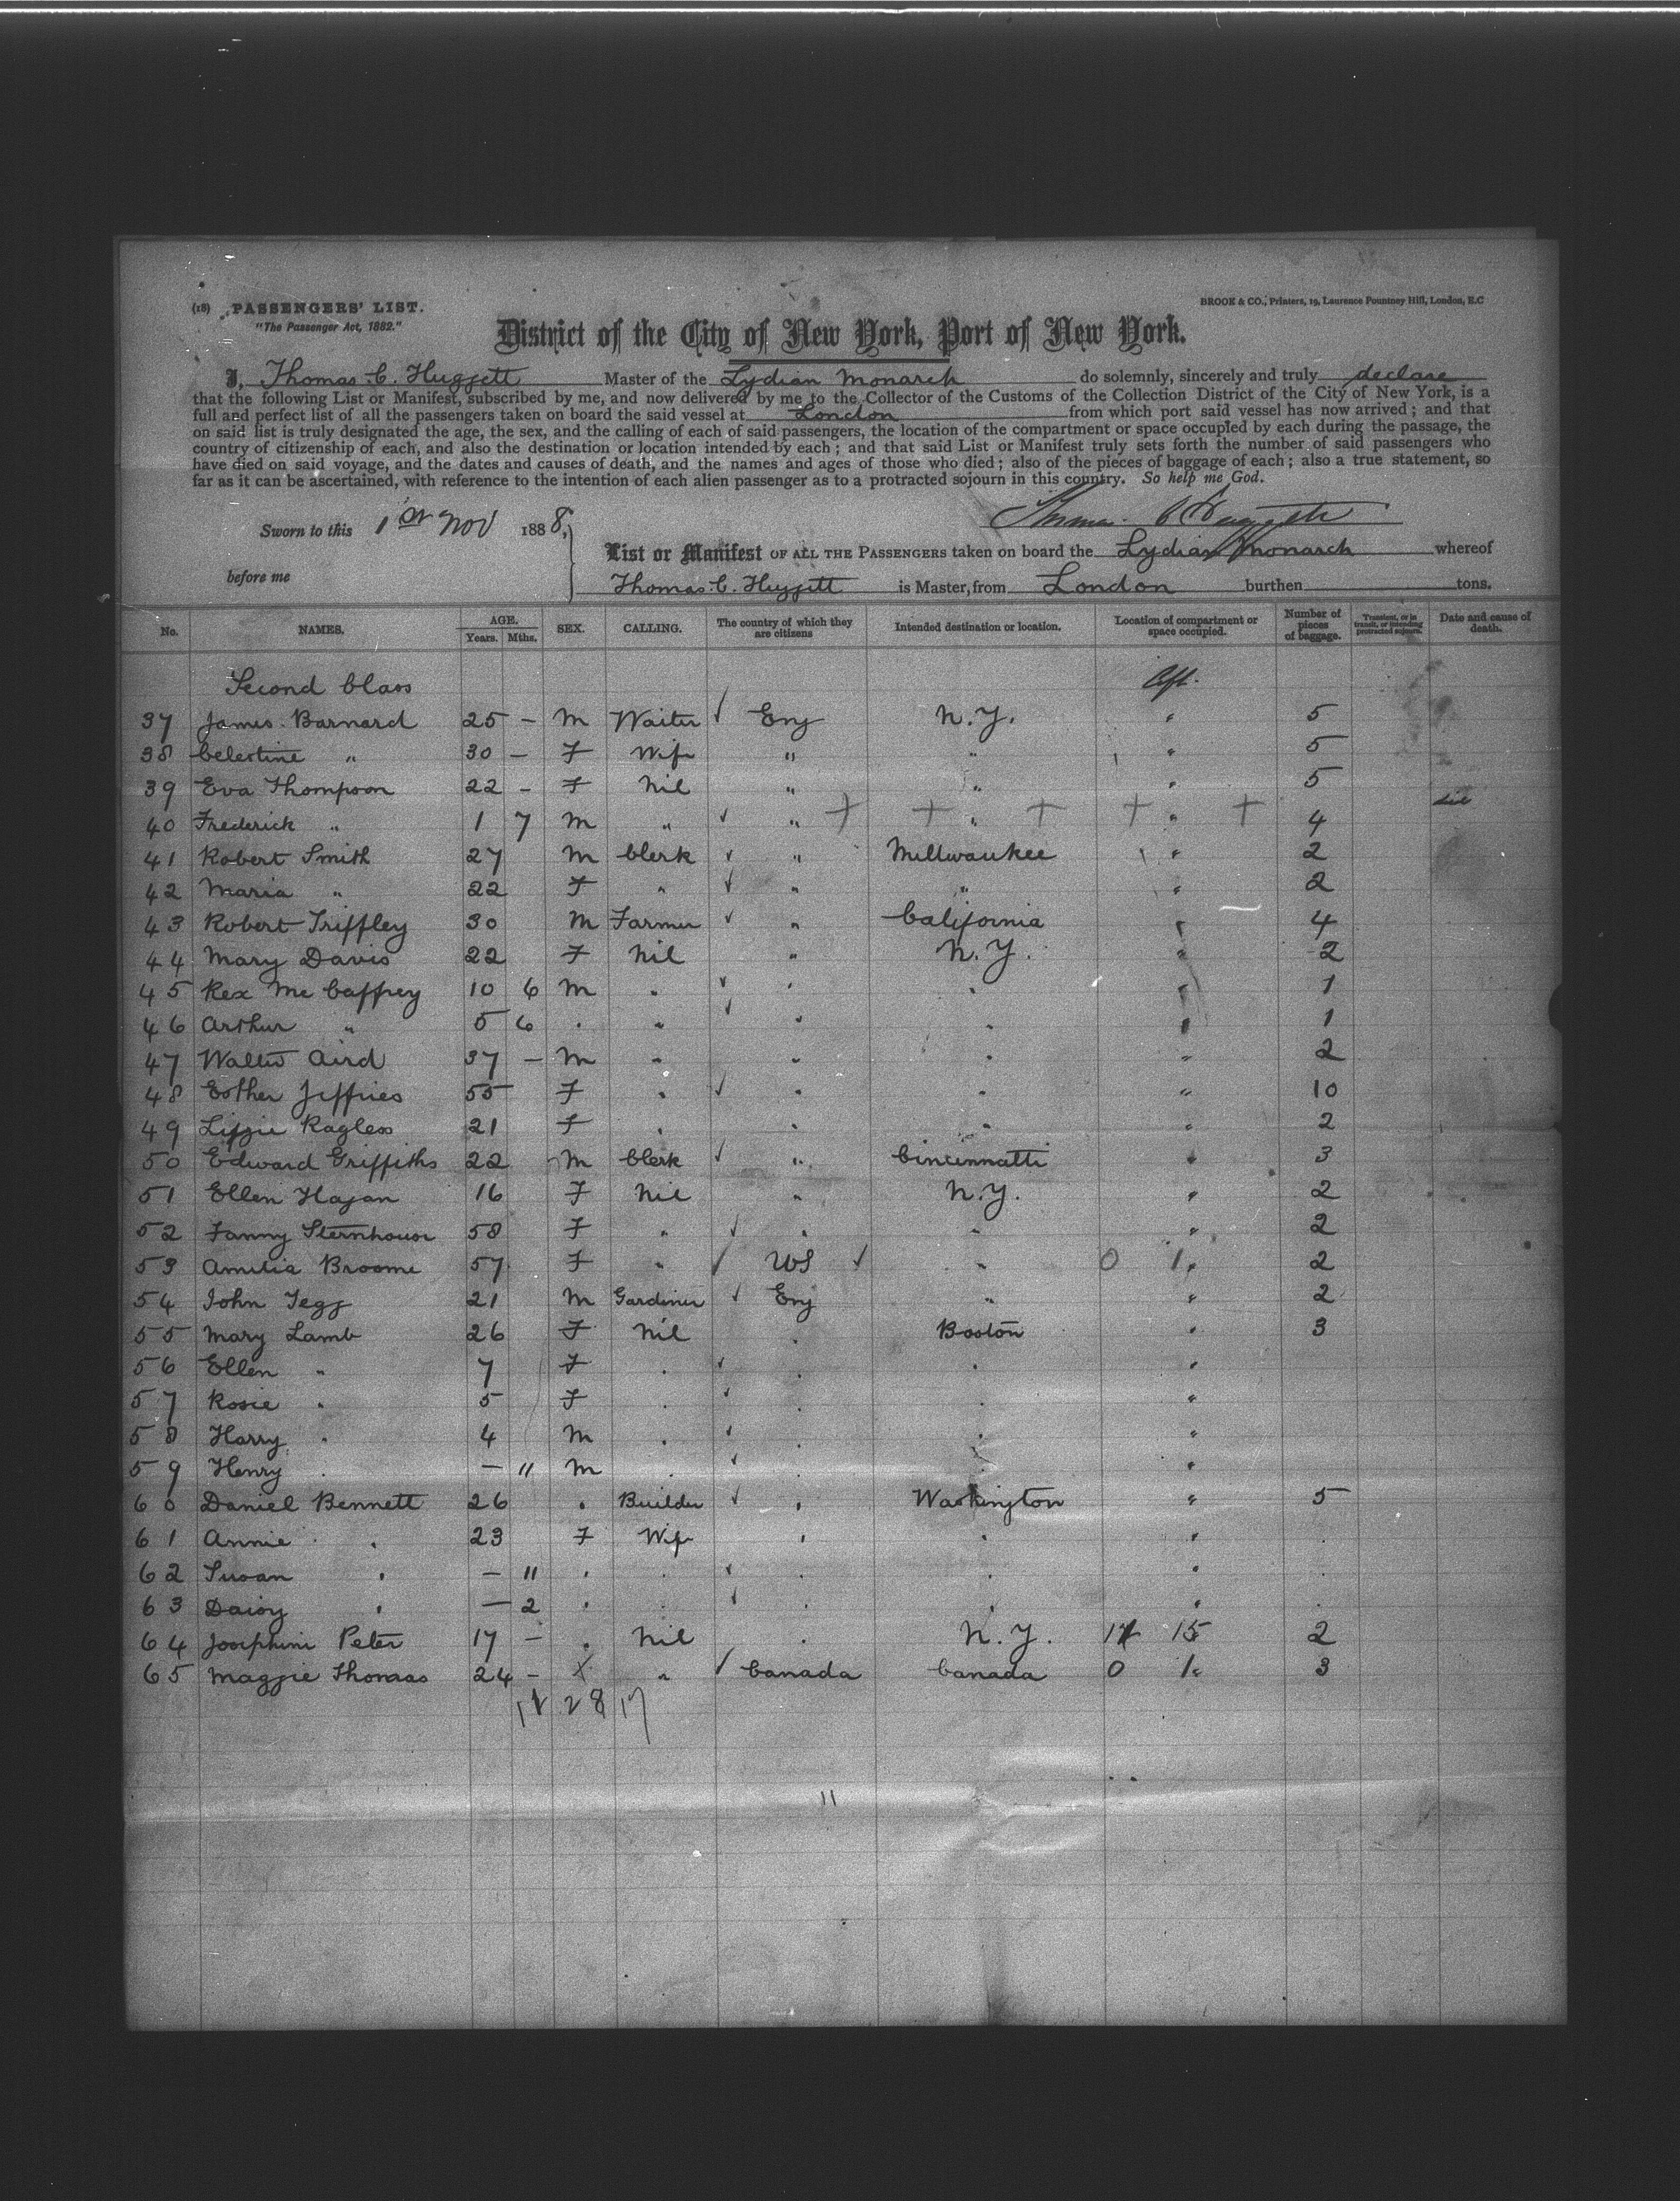 (18) PASSENGERS' LIST.
"The Passenger Act, 1882."
BROOK & CO., Printers, 19, Laurence Pountney Hill, London, E.C
District of the City of New York, Port of New York.
I, Thomas C. Huggett Master of the Lydian Monarch do solemnly, sincerely and truly declare
that the following List or Manifest, subscribed by me, and now delivered by me to the Collector of the Customs of the Collection District of the City of New York, is a
full and perfect list of all the passengers taken on board the said vessel at London from which port said vessel has now arrived; and that
on said list is truly designated the age, the sex, and the calling of each of said passengers, the location of the compartment or space occupied by each during the passage, the
country of citizenship of each, and also the destination or location intended by each; and that said List or Manifest truly sets forth the number of said passengers who
have died on said voyage, and the dates and causes of death, and the names and ages of those who died; also of the pieces of baggage of each; also a true statement, so
far as it can be ascertained, with reference to the intention of each alien passenger as to a protracted sojourn in this country. So help me God.
Thomas C Huggett
Sworn to this 1st Nov 1888,
List or Manifest OF ALL THE PASSENGERS taken on board the Lydian Monarch whereof
before me
Thomas C. Huggett is Master, from London burthen tons.
No. NAMES. AGE. Years. Mths. SEX. CALLING. The country of which they are citizens Intended destination or location. Location of compartment or space occupied. Number of pieces of baggage. Transient, or in transit, or intending protracted sojourn. Date and cause of death.
Second Class Aft.
37 James Barnard 25 – M Waiter ✓ Eng N.Y. " 5
38 Celestine " 30 – F Wife " " " 5
39 Eva Thompson 22 – F Nil " " " 5
40 Frederick " 1 7 M " ✓ " + + " + + " + 4
41 Robert Smith 27 M Clerk ✓ " Millwaukee " 2
42 Maria " 22 F " ✓ " " " 2
43 Robert Triffley 30 M Farmer ✓ " California " 4
44 Mary Davis 22 F Nil " N.Y. " 2
45 Rex Mc Caffrey 10 6 M " ✓ " " " 1
46 Arthur " 5 6 " " ✓ " " " 1
47 Walter Aird 37 – M " " " " 2
48 Esther Jeffries 55 F " ✓ " " " 10
49 Lizzie Ragless 21 F " " " " 2
50 Edward Griffiths 22 M Clerk ✓ " Cincinnatti " 3
51 Ellen Hagan 16 F Nil " N.Y. " 2
52 Fanny Sternhouse 58 F " ✓ " " " 2
53 Amelia Broome 57 F " ✓ US ✓ " 0 1 " 2
54 John Tegg 21 M Gardiner ✓ Eng " " 2
55 Mary Lamb 26 F Nil " Boston " 3
56 Ellen " 7 F " ✓ " " "
57 Rosie " 5 F " ✓ " " "
58 Harry " 4 M " ✓ " " "
59 Henry " – 11 M " ✓ " " "
60 Daniel Bennett 26 " Builder ✓ " Washington " 5
61 Annie " 23 F Wife " " " "
62 Susan " – 11 " " ✓ " " " "
63 Daisy " – 2 " " ✓ " " " "
64 Josephine Peter 17 – " Nil " N.Y. 15 2
65 Maggie Thomas 24 – " ✓ Canada Canada 0 1 " 3
28 17
11